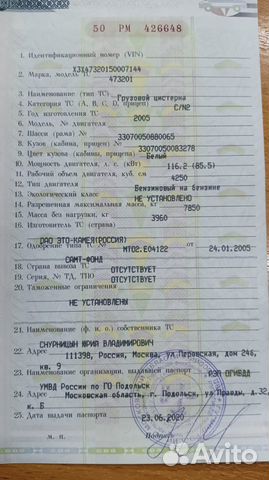 50 РМ 426648
1. Идентификационный номер (VIN)
X3X47320150007144
2. Марка, модель ТС
473201
3. Наименование (тип ТС) Грузовой цистерна
4. Категория ТС (A, B, C, D, прицеп) C/N2
5. Год изготовления ТС 2005
6. Модель, № двигателя
7. Шасси (рама) № 33070050880065
8. Кузов (кабина, прицеп) № 33070050083278
9. Цвет кузова (кабины, прицепа) Белый
10. Мощность двигателя, л. с. (кВт) 116.2 (85.5)
11. Рабочий объем двигателя, куб. см 4250
12. Тип двигателя Бензиновый на бензине
13. Экологический класс НЕ УСТАНОВЛЕНО
14. Разрешенная максимальная масса, кг 7850
15. Масса без нагрузки, кг 3960
16. Изготовитель ТС (страна)
ОАО ЭТО-КАМЕЯ(РОССИЯ)
17. Одобрение типа ТС № МТ02.Е04122 от 24.01.2005
САМТ-ФОНД
18. Страна вывоза ТС ОТСУТСТВУЕТ
19. Серия, № ТД, ТПО ОТСУТСТВУЕТ
20. Таможенные ограничения
НЕ УСТАНОВЛЕНЫ
21. Наименование (ф. и. о.) собственника ТС
СНУРНИЦЫН ЮРИЙ ВЛАДИМИРОВИЧ
22. Адрес 111398, Россия, Москва, ул Перовская, дом 246,
кв. 9
23. Наименование организации, выдавшей паспорт РЭП ОГИБДД
УМВД России по ГО Подольск
24. Адрес Московская область, г. Подольск, ул Правды, д.32,
к. Б
25. Дата выдачи паспорта 23.06.2020
М. П. Подпись
Avito